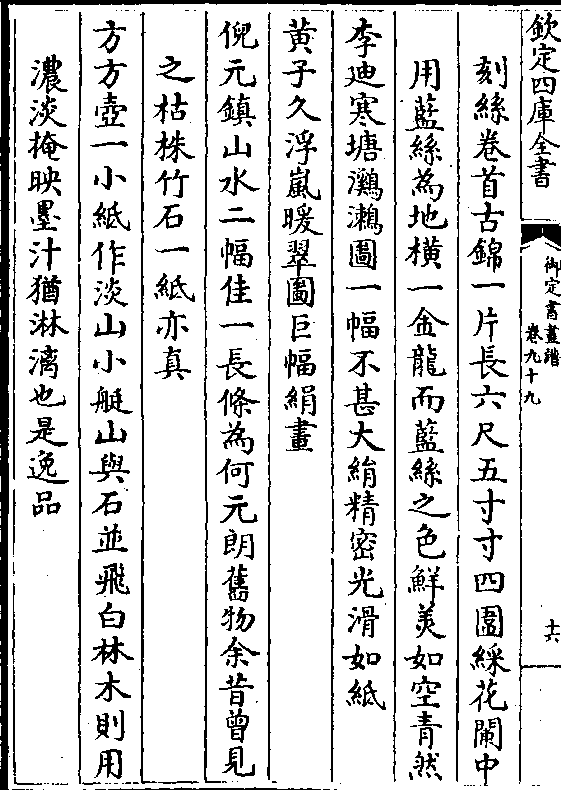 欽定四庫全書
御定書畫譜
卷九十九
十六
刻絲卷首古錦一片長六尺五寸寸四圍綵花闌中
用藍絲為地橫一金龍而藍絲之色鮮美如空青然
李廸寒塘㶉鶒圖一幅不甚大絹精密光滑如紙
黄子久浮嵐暖翠圖巨幅絹畫
倪元鎮山水二幅佳一長條為何元朗舊物余昔曾見
之枯株竹石一紙亦真
方方壺一小紙作淡山小艇山與石並飛白林木則用
濃淡掩映墨汁猶淋漓也是逸品